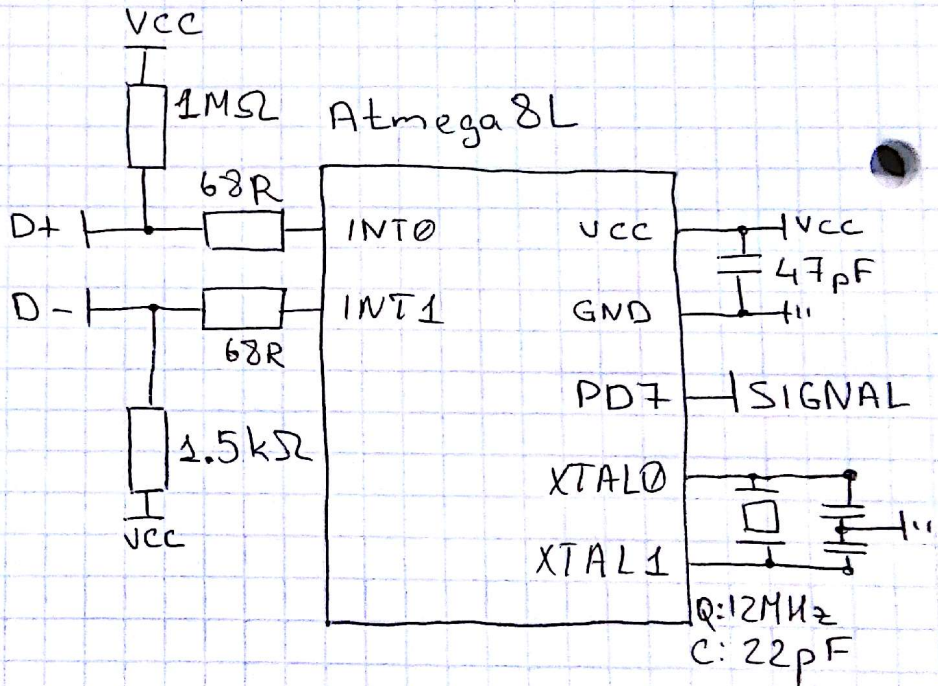 VCC
1MΩ
Atmega 8L
68R
D+
INT0
VCC
VCC
47pF
D-
INT1
GND
68R
PD7
SIGNAL
1.5kΩ
VCC
XTAL0
XTAL1
Q:12MHz
C: 22pF